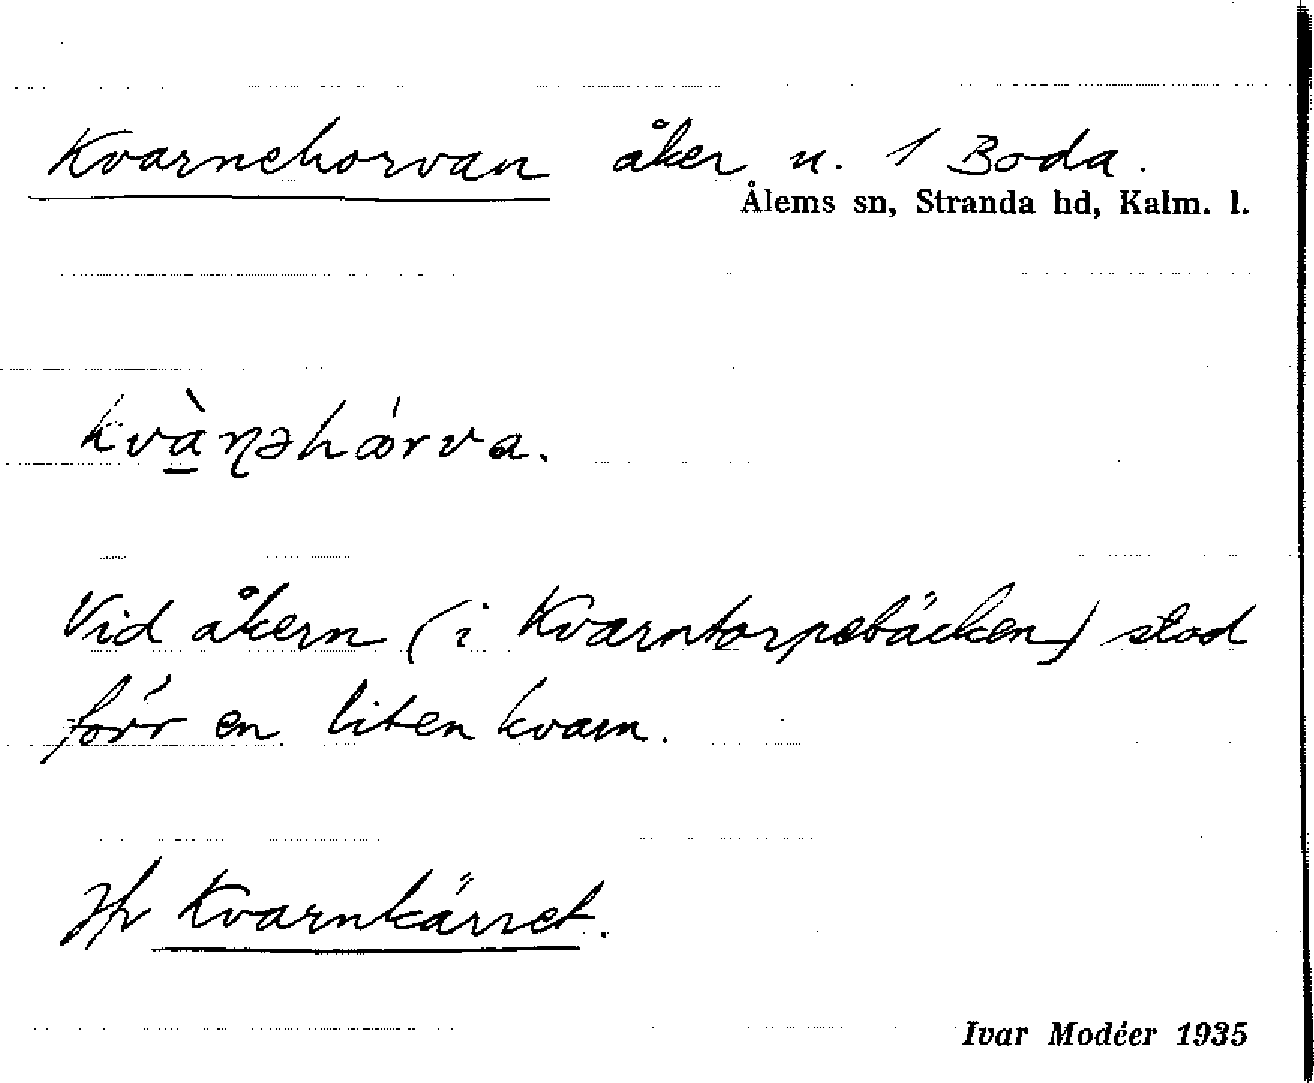 Kvarnehorvan åker u. 1 Boda.
Ålems sn, Stranda hd, Kalm. l.
kvàṉəhǿrva.
Vid åkern (i Kvarntorpsbäcken) stod
förr en liten kvarn.
Jfr Kvarnkärret.
Ivar Modéer 1935